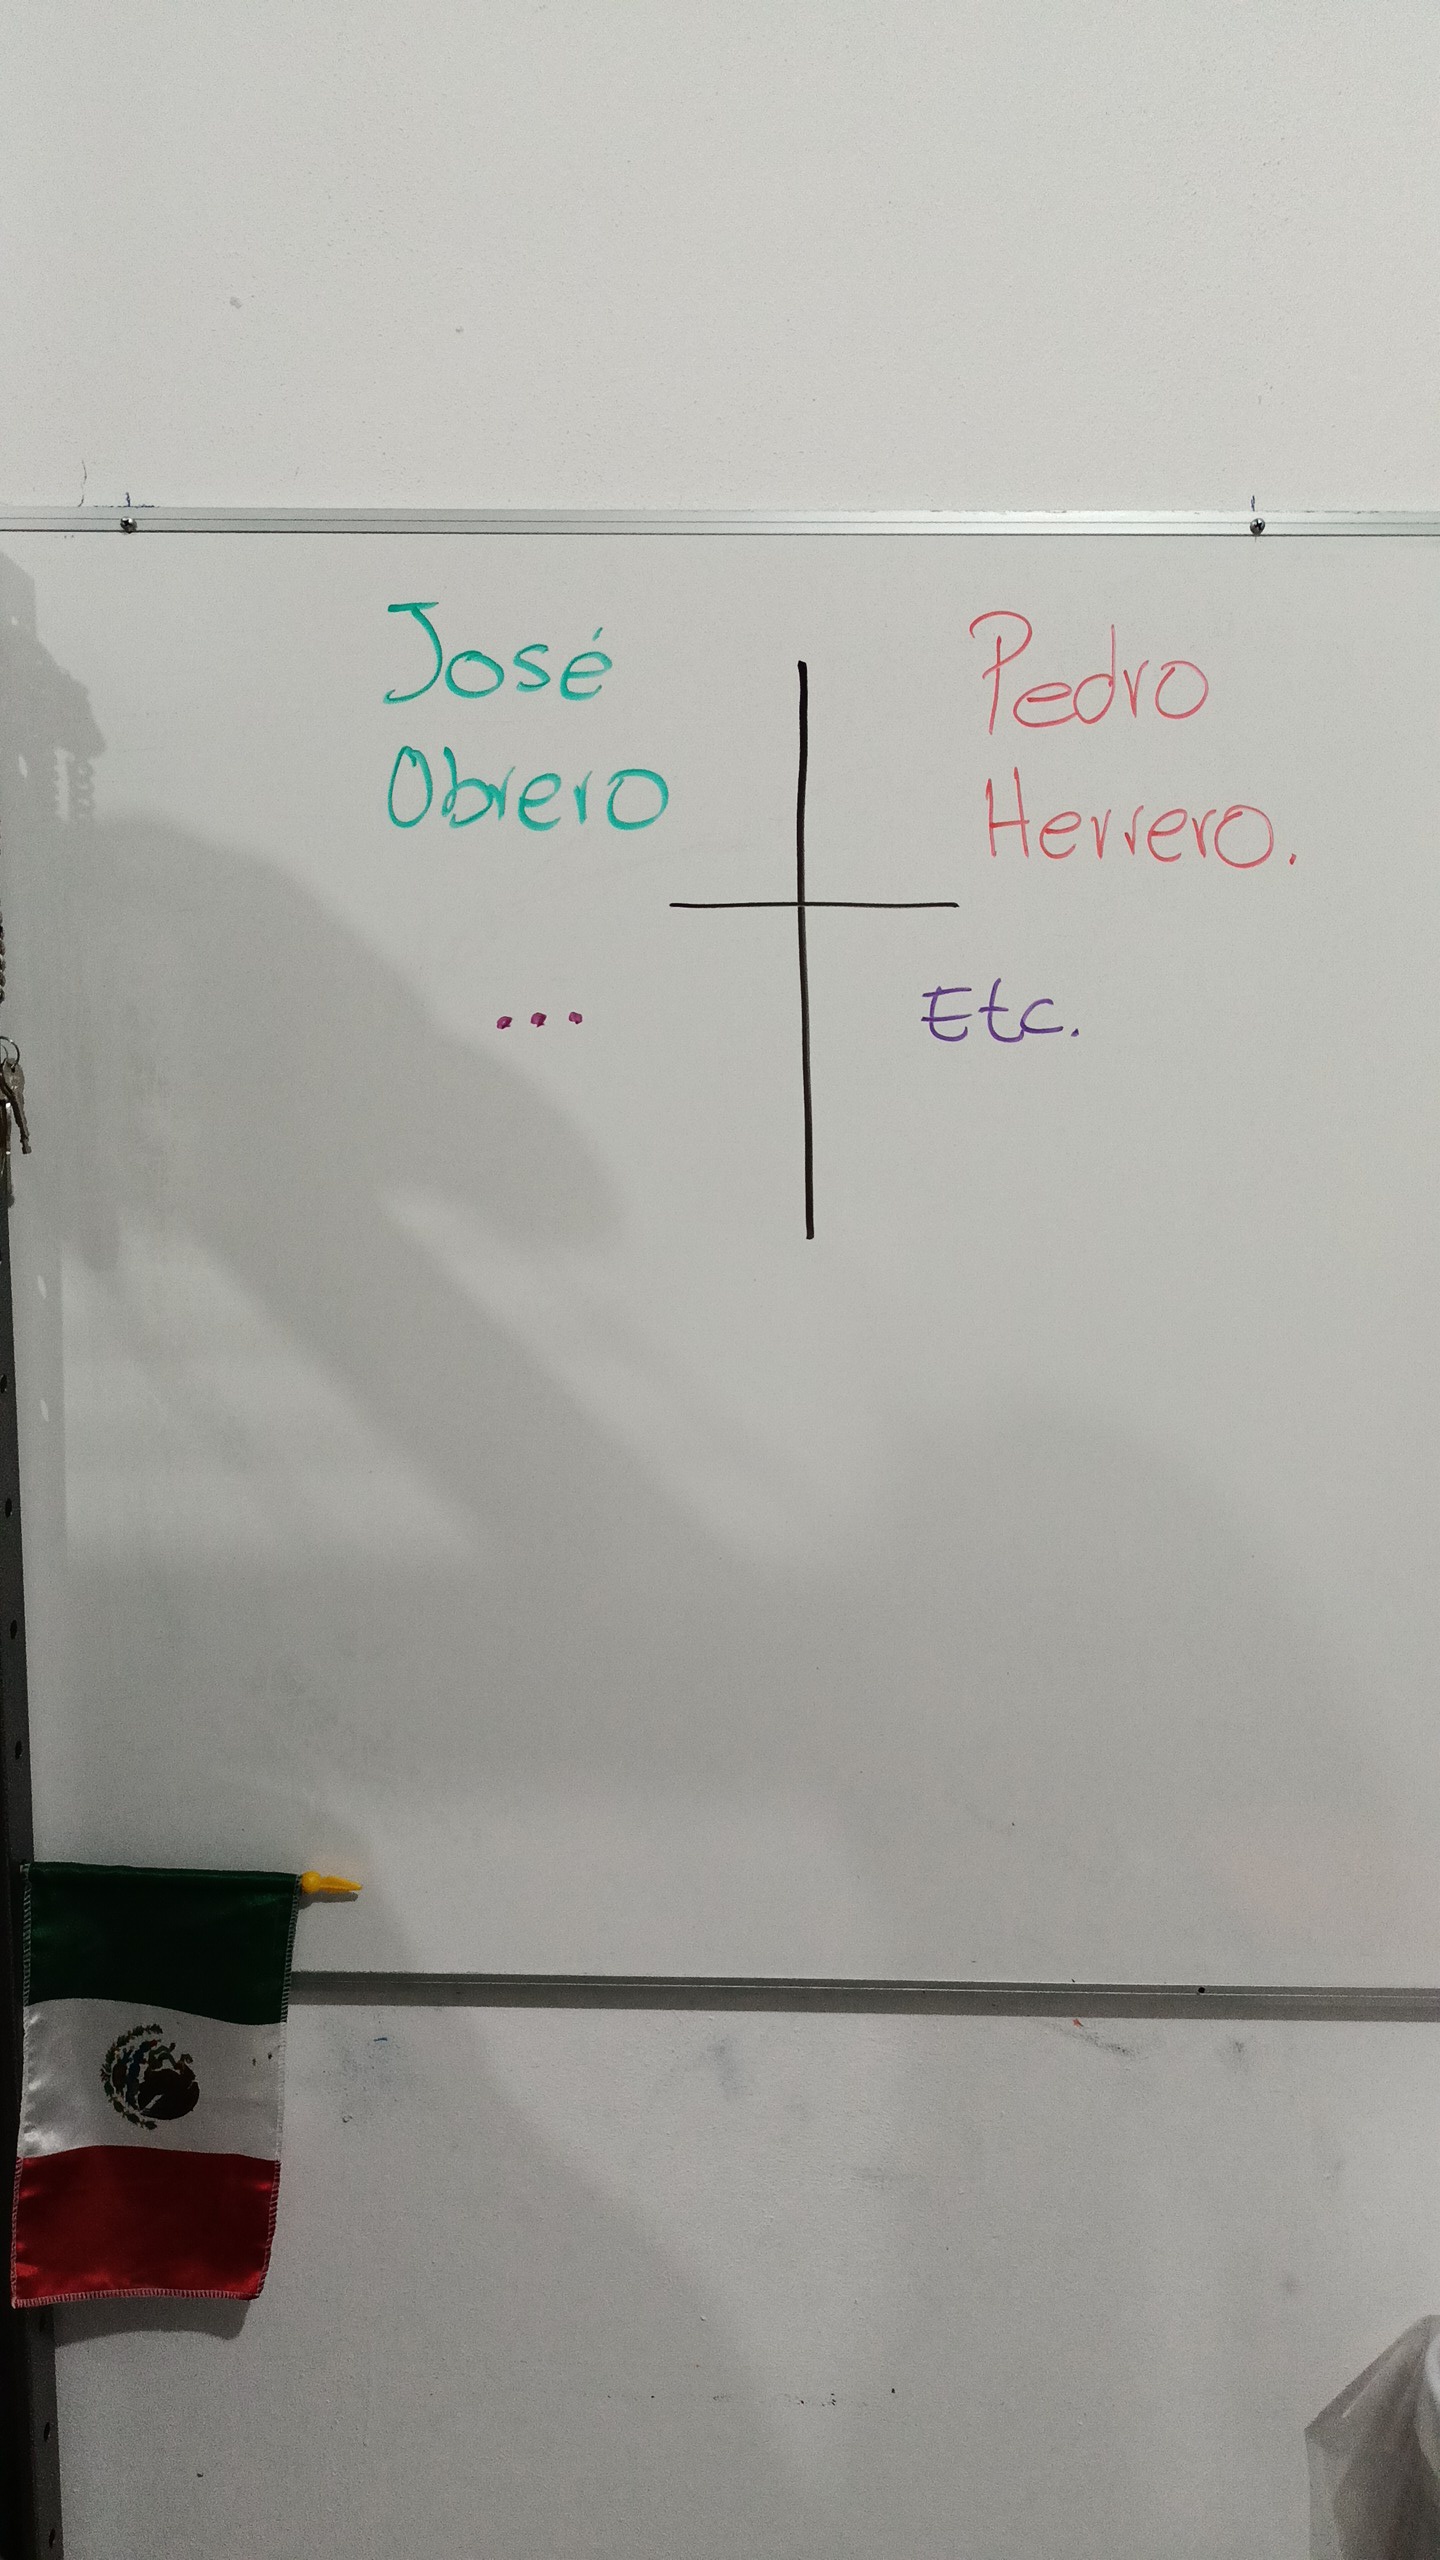 José
Obrero
Pedro
Herrero.
...
Etc.